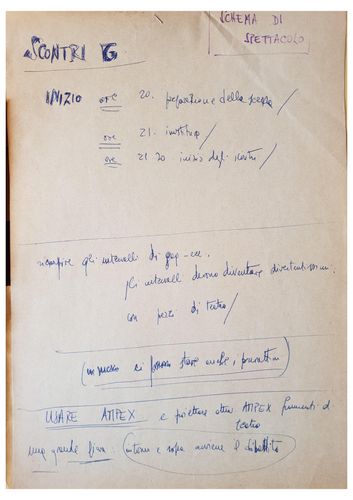 SCHEMA DI
SPETTACOLO
SCONTRI G
INIZIO ore 20. preparazione della scena
ore 21.
ore 21.20 inizio degli scontri
riempire gli intervalli di
gli intervalli devono diventare divertentissimi
con pezzi di teatro
(in mezzo ci possono stare anche i
USARE AMPEX e proiettare altri AMPEX frammenti di
teatro
una grande : intorno e sopra avviene il dibattito